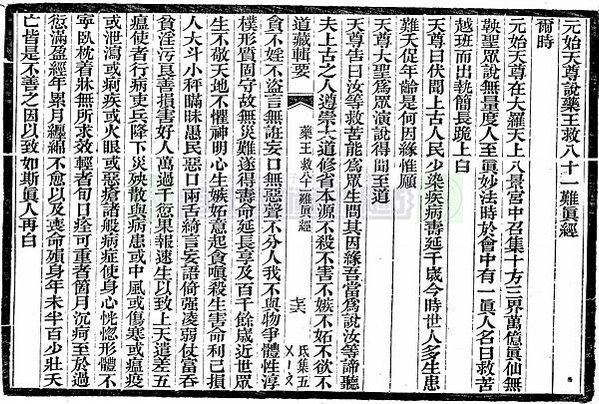 元始天尊說藥王救八十一難眞經
爾時
元始天尊在大羅天上八景宮中召集十方三界萬億眞仙無
鞅聖眾說無量度人至眞妙法時於會中有一眞人名曰救苦
越班而出執簡長跪上白
天尊曰伏聞上古人民少染疾病壽延千歲今時世人多生患
難夭促年齡是何因緣惟願
天尊大聖爲眾演說得聞至道
天尊告曰汝等救苦能爲眾生問其因緣吾當爲說汝等諦聽
夫上古之人遵崇大道修省本源不殺不害不嫉不妬不欲不
道藏輯要
藥王救八十一難眞經
氐集五
貪不婬不盜言無誑妄口無惡聲不分人我不與物爭體性淳
樸形質固守故無災難遂得壽命延長享及百千餘歲近世眾
生不敬天地不懼神明心生嫉妬意起貪嗔殺生害命利己損
人大斗小秤瞞昧愚民惡口兩舌綺言妄語倚強凌弱仗富吞
貧淫污良善損害好人萬過千愆果報速生以致上天遣差五
瘟使者行病吏兵降下災殃散與病患或中風或傷寒或瘟疫
或泄瀉或痢疾或火眼或惡瘡諸般病症使身心恍惚形體不
寧臥枕着牀無所求效輕者旬日痊可重者箇月沉疴至於過
愆滿盈經年累月纏綿不愈以及喪命殞身年未半百少壯夭
亡皆是不善之因以致如斯眞人再白